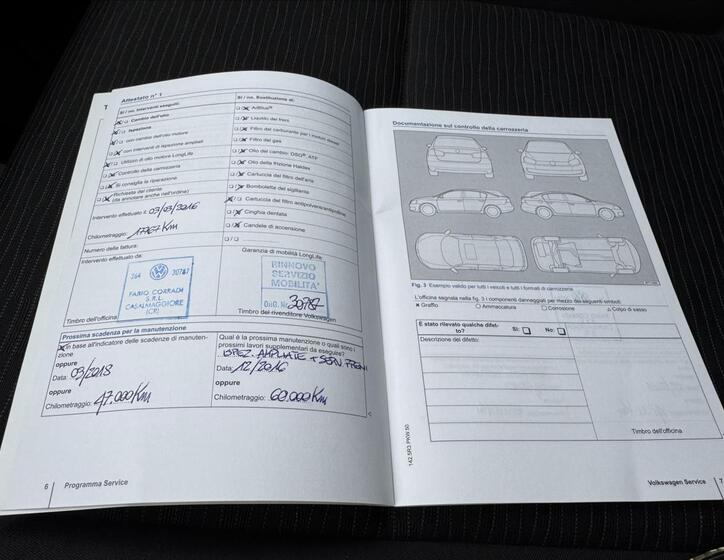 Attestato n° 1
SI / no. Interventi eseguiti:
Cambio dell'olio
Ispezione
con cambio dell'olio motore
con interventi di ispezione ampliati
Utilizzo di olio motore LongLife
Controllo della carrozzeria
Si consiglia la riparazione
Richiesta del cliente
(da annotare anche nell'ordine)
Intervento effettuato il: 03/03/2016
Chilometraggio: 17767 Km
Numero della fattura:
Intervento effettuato da:
264 30787
FABIO CORRADI
S.R.L.
CASALMAGGIORE
(CR)
Timbro dell'officina
SI / no. Sostituzione di:
AdBlue®
Liquido dei freni
Filtro del carburante per i motori diesel
Filtro del gas
Olio del cambio: DSG®, ATF
Olio della frizione Haldex
Cartuccia del filtro dell'aria
Bomboletta del sigillante
Cartuccia del filtro antipolvere/antipolline
Cinghia dentata
Candele di accensione
Garanzia di mobilità LongLife
RINNOVO
SERVIZIO
MOBILITA'
Org. Nr. 30787
Timbro del rivenditore Volkswagen
Prossima scadenza per la manutenzione
in base all'indicatore delle scadenze di manuten-
zione
oppure
Data: 03/2018
oppure
Chilometraggio: 47.000 Km
Qual è la prossima manutenzione o quali sono i
prossimi lavori supplementari da eseguire?
ISPEZ. AMPLIATE + SERV. FRENI
Data: 12/2016
oppure
Chilometraggio: 60.000 Km
6 Programma Service
Documentazione sul controllo della carrozzeria
Fig. 3 Esempio valido per tutti i veicoli e tutti i formati di carrozzeria.
L'officina segnala nella fig. 3 i componenti danneggiati per mezzo dei seguenti simboli:
× Graffio ○ Ammaccatura □ Corrosione △ Colpo di sasso
È stato rilevato qualche difet-
to?
Sì:
No:
Descrizione del difetto:
Timbro dell'officina
142.5R3.PKW.50
Volkswagen Service 7